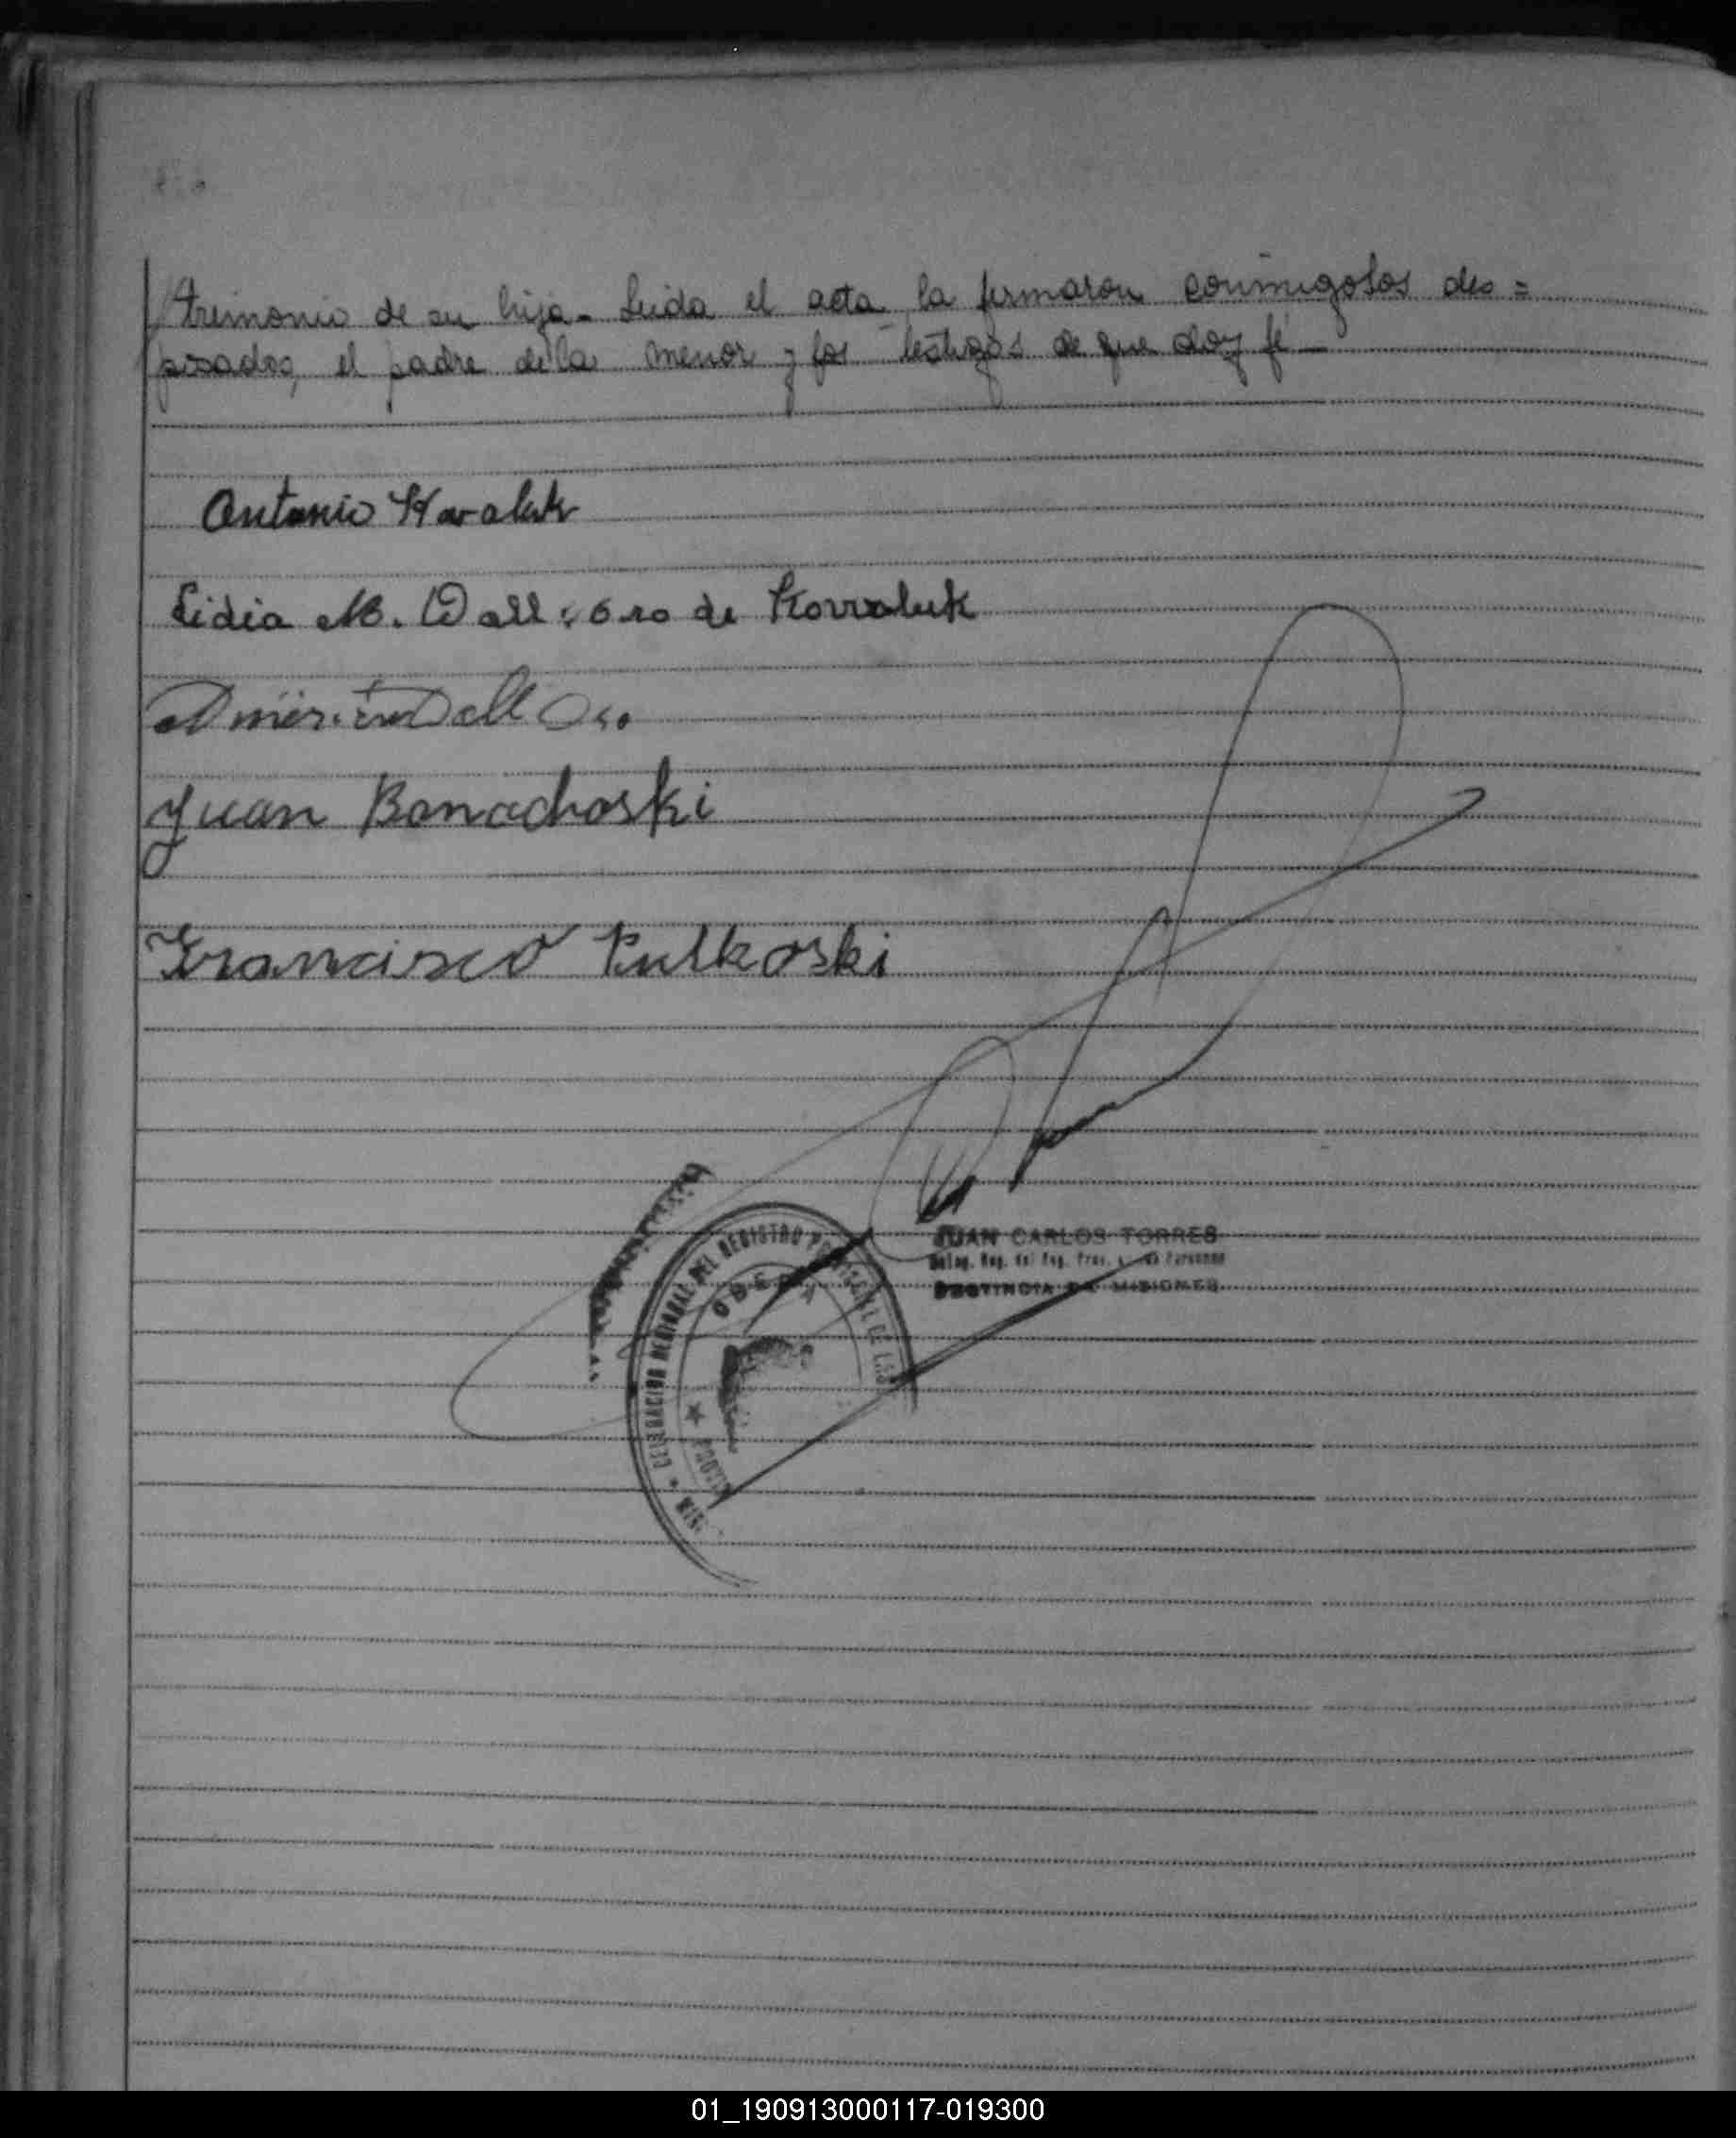 trimonio de su hija - Leida el acta la firmaron conmigo los des =
posados, el padre de la menor y los testigos de que doy fé -
Antonio Kovaluk
Lidia M. Dall Oro de Kovaluk
Américo Dall Oro
Juan Bonachoski
Francisco Pulkoski
JUAN CARLOS TORRES
Deleg. Reg. del Reg. Prov. Personas
PROVINCIA DE MISIONES
DELEGACION REGIONAL DEL REGISTRO PROVINCIAL DE LAS
OBERA
01_190913000117-019300